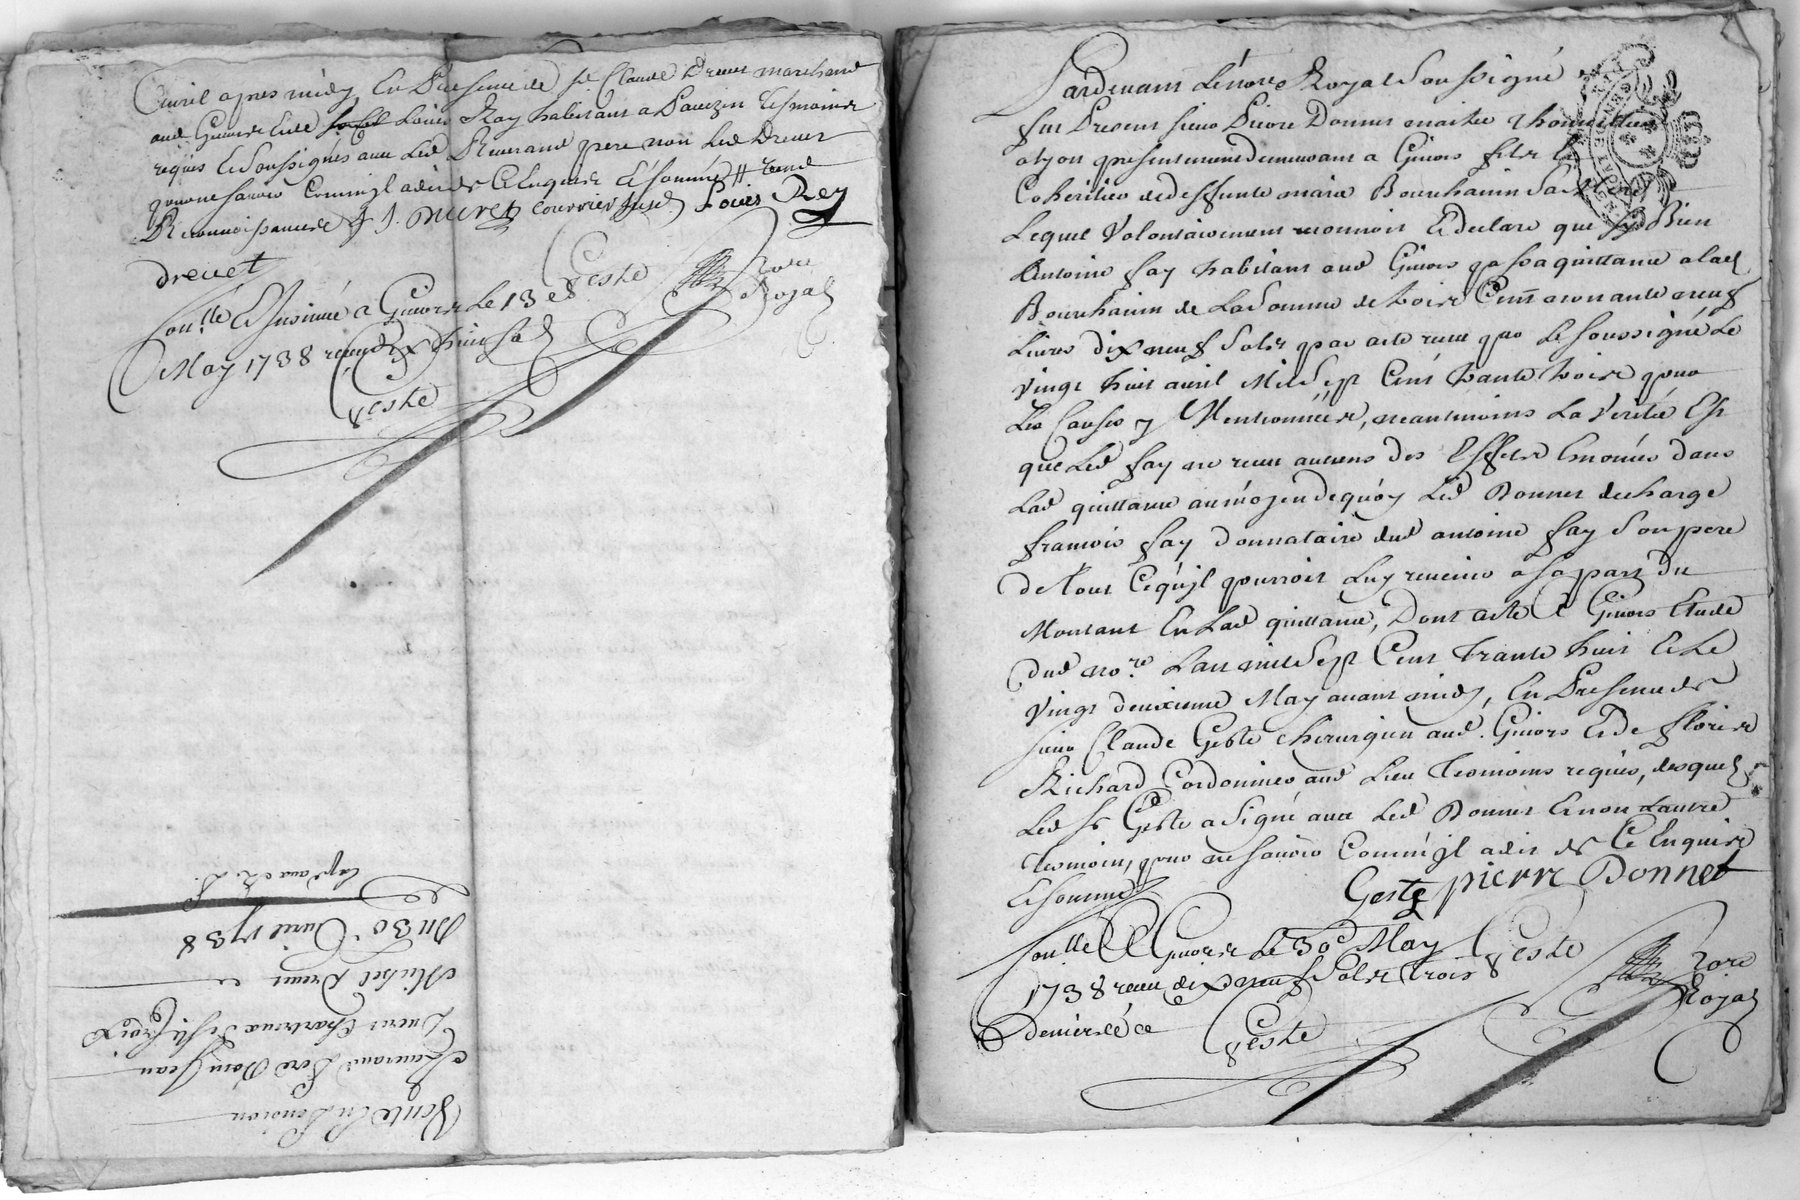 Avril apres midy En Presence de Sr Claude Drevet marchand
aud Givors Et de Louis Rey habitant a Pavezin tesmoins
requis et soussignés avec led Reverand pere non led Drevet
pour ne savoir Comm'jl a dit de Ce Enquis et sommé
Reconnoissance J. Nuvet courrier susd Louis Rey
drevet
Geste Nore
Royal
Conlle et Insinué a Givors Le 13e
May 1738 receu dix huit sols
Geste
Vente En Pension
Reverand Pere Dom Jean
Chartreux de Ste Croix
Michel Drevet
Du 30e Avril 1738
Pardevant Le Nore Royal Soussigné
fut Present sieur Pierre Donnet maitre
a Lyon presentement demeurant a Givors fils Et
Coheritier de deffunte marie Bourchanin sa Mere
Lequel Volontairement reconnoit et declare que si Bien
Antoine fay habitant aud Givors passa quittance a lad
Bourchanin de La Somme de trois Cent nonante neuf
Livres dix neuf Sols par acte receu par le soussigné Le
vingt huit avril Mil Sept Cent trante trois pour
Les Causes y Mentionnées, neantmoins La verité Est
que Led fay ne receut aucuns des Effets Enoncés dans
Lad quittance au moyen de quoy Led Donnet decharge
francois fay donnataire dud antoine fay Son pere
de tout Ce qu'jl pourroit Luy revenir a sa part du
Montant En Lad quittance, Dont acte a Givors Etude
dud nore. L'an mil Sept Cent trante huit et Le
vingt deuxieme May avant midy, En Presence de
sieur Claude Geste chirurgien aud. Givors et de floris
Richard Cordonnier aud Lieu tesmoins requis, desquels
Led Sr Geste a signé avec Led Donnet Et non L'autre
tesmoin, pour ne savoir Comm'jl a dit de Ce Enquis
Et sommé
Geste pierre Donnet
Conlle A Givors Le 30e May
1738 receu dix neuf Sols trois
deniers
Geste
Geste Nore
Royal